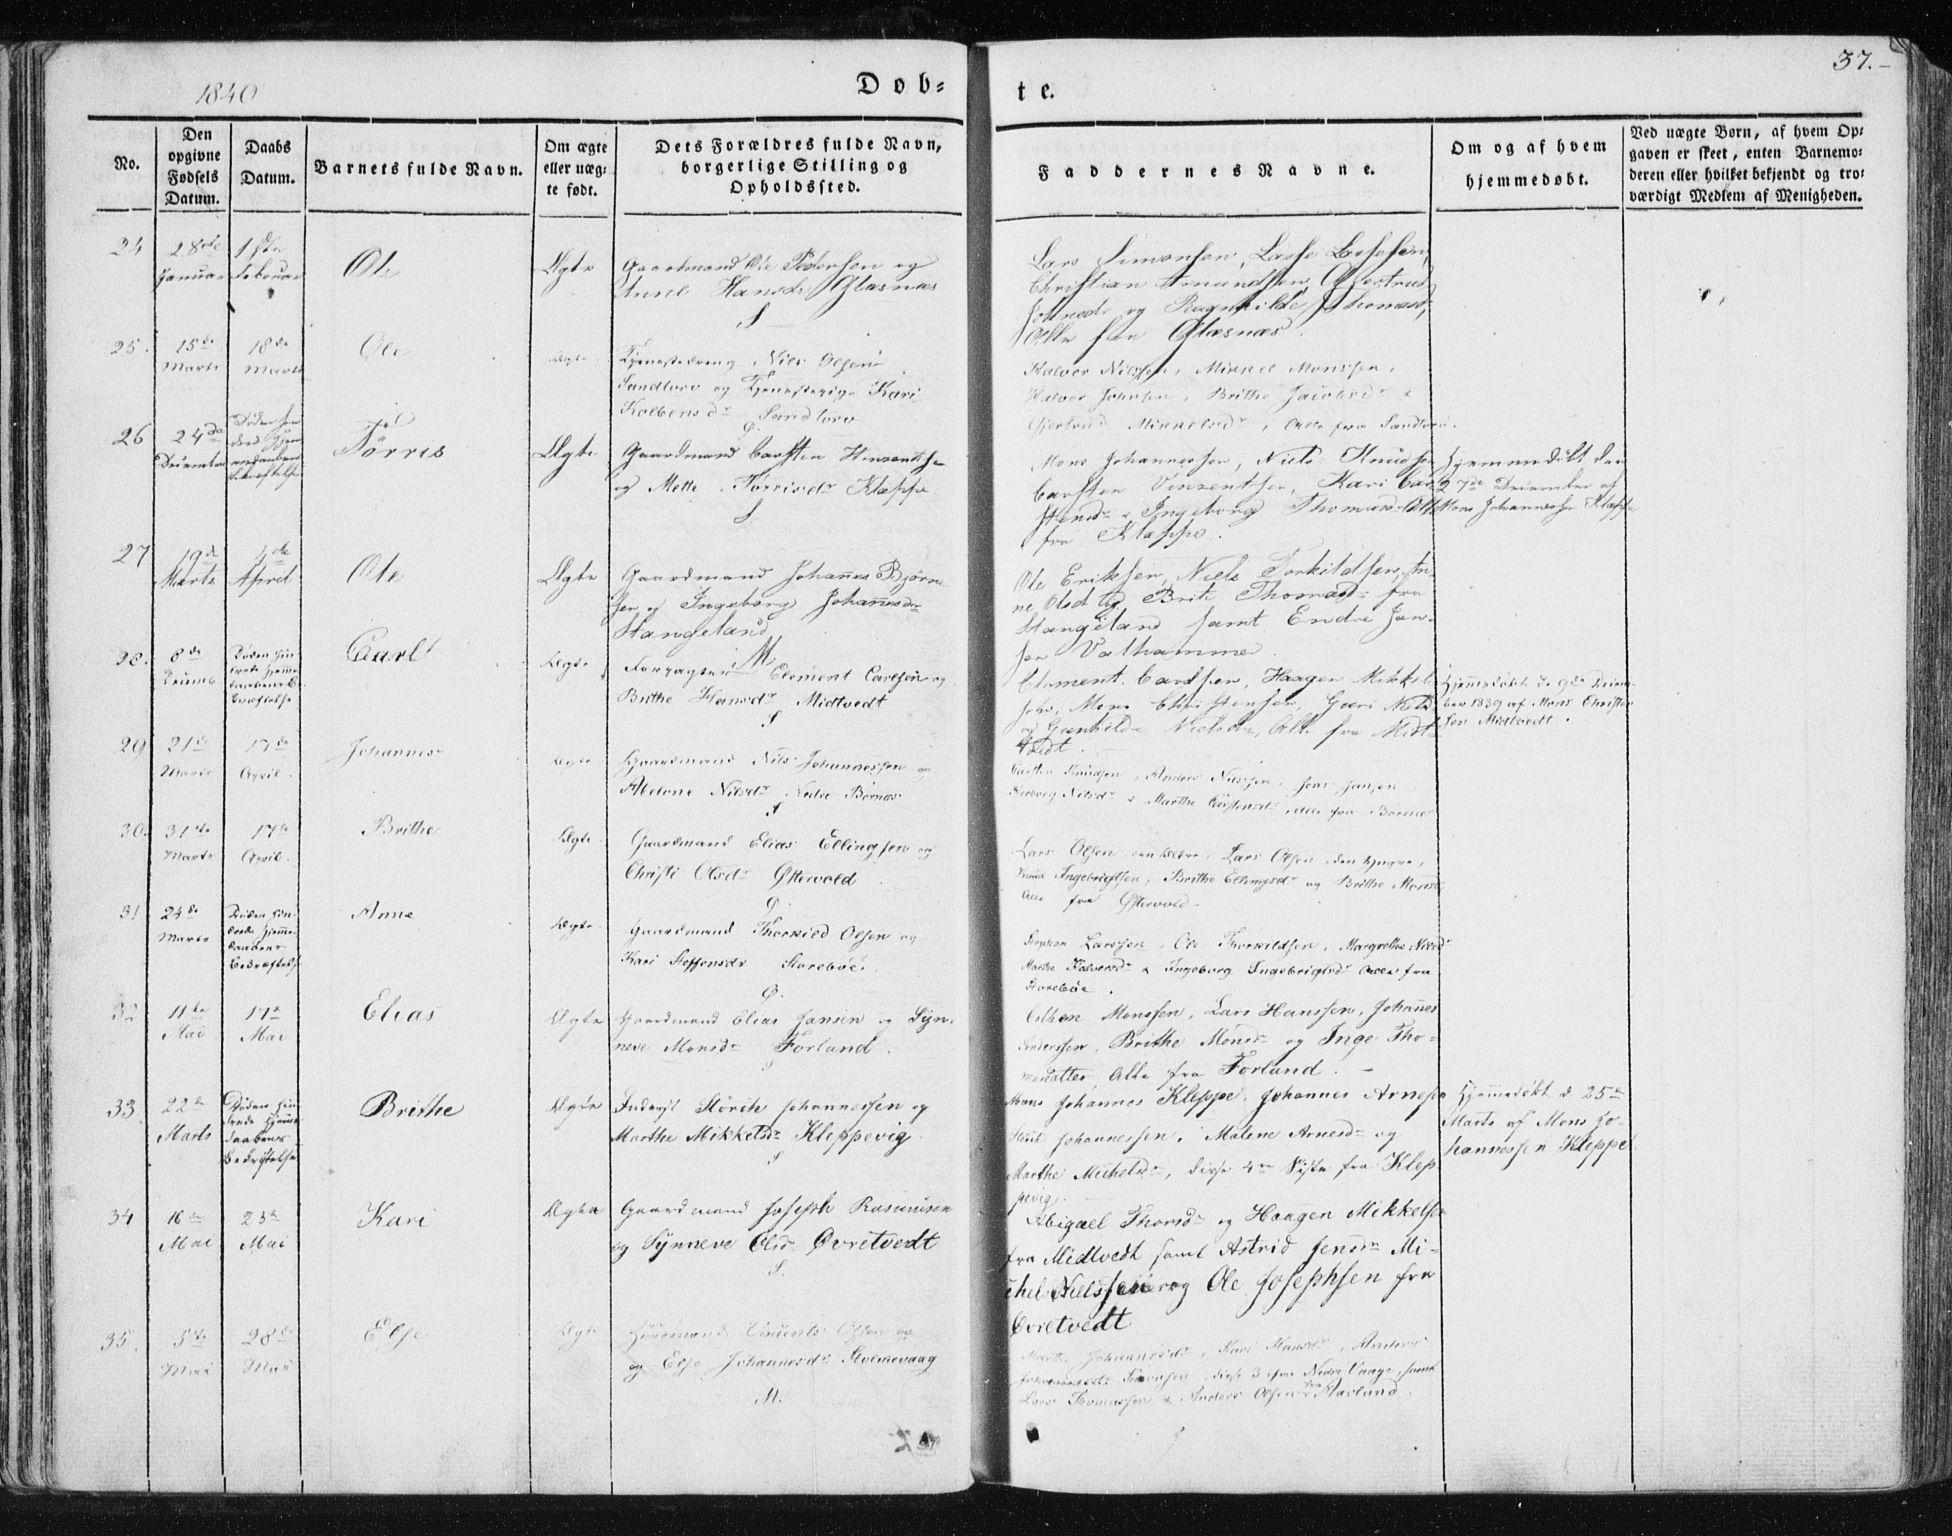 1840
Døb-
te.
37.-
No.
Den opgivne Fødsels Datum.
Daabs Datum.
Barnets fulde Navn.
Om ægte eller uægte født.
Dets Forældres fulde Navn,
borgerlige Stilling og
Opholdssted.
Faddernes Navne.
Om og af hvem
hjemmedøbt.
Ved uægte Børn, af hvem Op-
gaven er skeet, enten Barnemo-
deren eller hvilket bekjendt og tro-
værdigt Medlem af Menigheden.
24 28de Januar 1ste Februar Ole Ægte
Gaardmand Ole Pedersen og
Hansdr Glæsnæs
S
Lars Simonsen, Lasse
Christian Amundsen,
og Ragnhilde
Alle fra Glæsnæs.
25. 15de Marts 18de Marts Ole Ægte
Tjenestedreng Nils Olsen
Sandtorv og Tjenestepige Kari
Kolbensdr Sandtorv
Ø.
Halvor Nilssen, Mikkel Monssen,
Halvor Johnsen, Brithe Jacobsdr &
Gjertrud Mikkelsdr, Alle fra Sandtorv.
26 24de December Tørris Ægte
Gaardmand Carsten Vinzentsen
og Mette Tørrisdr Kleppe
S
Mons Johannessen, Niels Knudsen
Carsten Vinzentsen, Kari Car-
stensdr & Ingeborg Thomasd Alle
fra Kleppe.
Hjemmedøbt den
27de December af
Mons Johannessen Kleppe
27 19de Marts 4de April Ole Ægte
Gaardmand Johannes Bjørn-
sen og Ingeborg Johannesdr
Stangeland
M
Ole Eriksen, Niels Torkildsen, An-
ne Olsd og Brite Thomasdr fra
Stangeland samt Endre Jan-
sen Valhammer.
28. 8de Decemb Døden hin-
drede Hjemme-
daabens Be-
kræftelse
Carl Ægte
Clement Carlsen og
Brithe Hansdr Midtvedt
S
Clement Carlsen, Haagen Mikkel-
sen, Mons Christensen, Guri Nielsd
og Gunhilde Nielsdr, Alle fra Midt-
tvedt.
Hjemmedøbt d. 9de Decem-
ber 1839 af Mons Christen-
sen Midtvedt.
29 21de Marts 17de April Johannes Ægte
Gaardmand Nils Johannessen og
Abelone Nilsdr Nedre Børnæs
S
Carsten Knudsen, Anders Nilssen, Jens Jansen
Nilsdr & Marthe Carstensdr, alle fra Børnæs
30. 31te Marts 17de April. Brithe Ægte
Gaardmand Elias Ellingsen og
Christi Olsdr Østervold
Ø.
Lars Olsen den ældre, Lars Olsen den yngre,
Knud Ingebrigtsen, Brithe Ellingsdr og Brithe Monsd
Alle fra Østervold.
31 24de Marts Døden hin-
drede Hjemme-
daabens
Bekræftelse
Anne Ægte
Gaardmand Thorkild Olsen og
Kari Steffensdr Storebøe.
Ø.
Stephen Larssen, Ole Thorkildsen, Margrethe Nilsdr
Marthe Halvorsdr & Ingeborg Ingebrigtsdr Alle fra
Storebøe.
32 11te Mai 17de Mai Elias Ægte
Gaardmand Elias Jansen og Syn-
neve Monsdr Forland.
S
Monssen, Lars Hanssen, Johannes
Anderssen, Brithe Monsdr og Inge Tho-
masdatter, Alle fra Forland.
33. 22de Marts Døden hin-
drede Hjemme-
daabens
Bekræftelse
Brithe Ægte
Inderst Størik Johannessen og
Marthe Mikkelsdr Kleppevig
S
Mons Johannes Kleppe, Johannes Arnesen
Johannessen, Malene Arnesdr og
Marthe Michelsdr, disse 4re sidste fra Klep-
pevig.
Hjemmedøbt d 25de
Marts af Mons Jo-
hannessen Kleppe
34 16de Mai 23de Mai Kari Ægte
Gaardmand Joseph Rasmusen
og Synneve Olsdr Øvretvedt
S.
Abigael Thorsdr og Haagen Mikkelsen
fra Midtvedt samt Astrid Jensdr Mi-
chel Nielssen og Ole Josephsen fra
Øvretvedt
35. 5te Mai 28de Mai Else Ægte
Huusmand Vincents Olsen og
og Else Johannesdr Stolmevaag
M.
Marthe Johannesdr, Kari Hansdr, Anders
Simonsen, disse 3 fra Nedre Vaage, samt
Lars Thomassen & Anders Olsen fra Aarland.